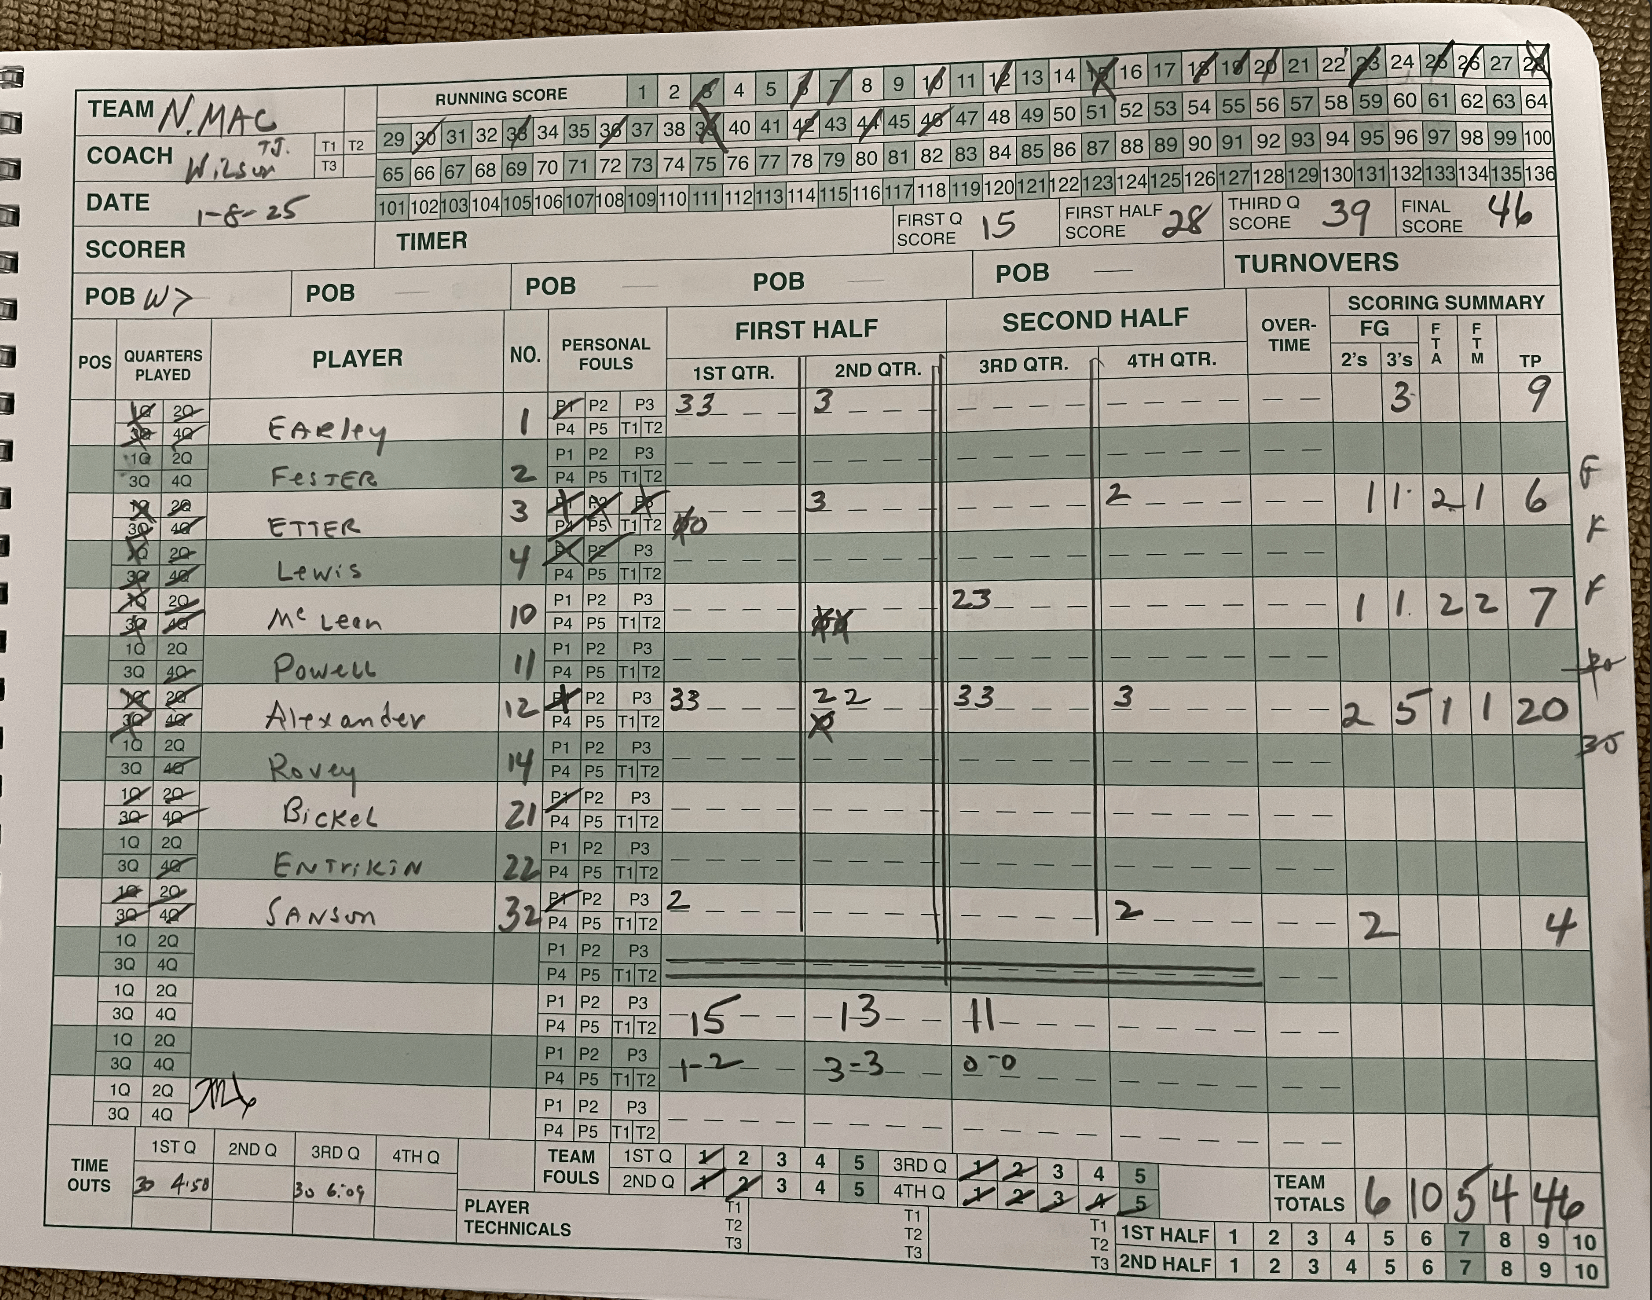 TEAM N. MAC
RUNNING SCORE 1 2 3 4 5 6 7 8 9 10 11 12 13 14 15 16 17 18 19 20 21 22 23 24 25 26 27 28
29 30 31 32 33 34 35 36 37 38 39 40 41 42 43 44 45 46 47 48 49 50 51 52 53 54 55 56 57 58 59 60 61 62 63 64
COACH Wilson TJ. T1 T2 T3
65 66 67 68 69 70 71 72 73 74 75 76 77 78 79 80 81 82 83 84 85 86 87 88 89 90 91 92 93 94 95 96 97 98 99 100
101 102 103 104 105 106 107 108 109 110 111 112 113 114 115 116 117 118 119 120 121 122 123 124 125 126 127 128 129 130 131 132 133 134 135 136
DATE 1-8-25
SCORER
TIMER
FIRST Q SCORE 15 FIRST HALF SCORE 28 THIRD Q SCORE 39 FINAL SCORE 46
POB W> POB — POB — POB — POB — TURNOVERS
POS QUARTERS PLAYED PLAYER NO. PERSONAL FOULS FIRST HALF SECOND HALF OVER-TIME SCORING SUMMARY
1ST QTR. 2ND QTR. 3RD QTR. 4TH QTR. FG 2's 3's FTA FTM TP
1Q 2Q 3Q 4Q EARley 1 P1 P2 P3 P4 P5 T1 T2 33 3 3 9
1Q 2Q 3Q 4Q FesTER 2 P1 P2 P3 P4 P5 T1 T2
1Q 2Q 3Q 4Q ETTER 3 P1 P2 P3 P4 P5 T1 T2 3 2 1 1 2 1 6
1Q 2Q 3Q 4Q Lewis 4 P1 P2 P3 P4 P5 T1 T2
1Q 2Q 3Q 4Q Mc Lean 10 P1 P2 P3 P4 P5 T1 T2 23 1 1 2 2 7
1Q 2Q 3Q 4Q Powell 11 P1 P2 P3 P4 P5 T1 T2
1Q 2Q 3Q 4Q Alexander 12 P1 P2 P3 P4 P5 T1 T2 33 22 33 3 2 5 1 1 20
1Q 2Q 3Q 4Q Rovey 14 P1 P2 P3 P4 P5 T1 T2
1Q 2Q 3Q 4Q BickEL 21 P1 P2 P3 P4 P5 T1 T2
1Q 2Q 3Q 4Q ENTrikiN 22 P1 P2 P3 P4 P5 T1 T2
1Q 2Q 3Q 4Q SANSom 32 P1 P2 P3 P4 P5 T1 T2 2 2 2 4
1Q 2Q 3Q 4Q P1 P2 P3 P4 P5 T1 T2
1Q 2Q 3Q 4Q P1 P2 P3 P4 P5 T1 T2 15 13 11
1Q 2Q 3Q 4Q P1 P2 P3 P4 P5 T1 T2 1-2 3-3 0-0
1Q 2Q 3Q 4Q P1 P2 P3 P4 P5 T1 T2
TIME OUTS 1ST Q 2ND Q 3RD Q 4TH Q
30 4:58 30 6:09
TEAM FOULS 1ST Q 1 2 3 4 5 3RD Q 1 2 3 4 5
2ND Q 1 2 3 4 5 4TH Q 1 2 3 4 5
TEAM TOTALS 6 10 5 4 46
PLAYER TECHNICALS T1 T2 T3 T1 T2 T3 T1 T2 T3
1ST HALF 1 2 3 4 5 6 7 8 9 10
2ND HALF 1 2 3 4 5 6 7 8 9 10